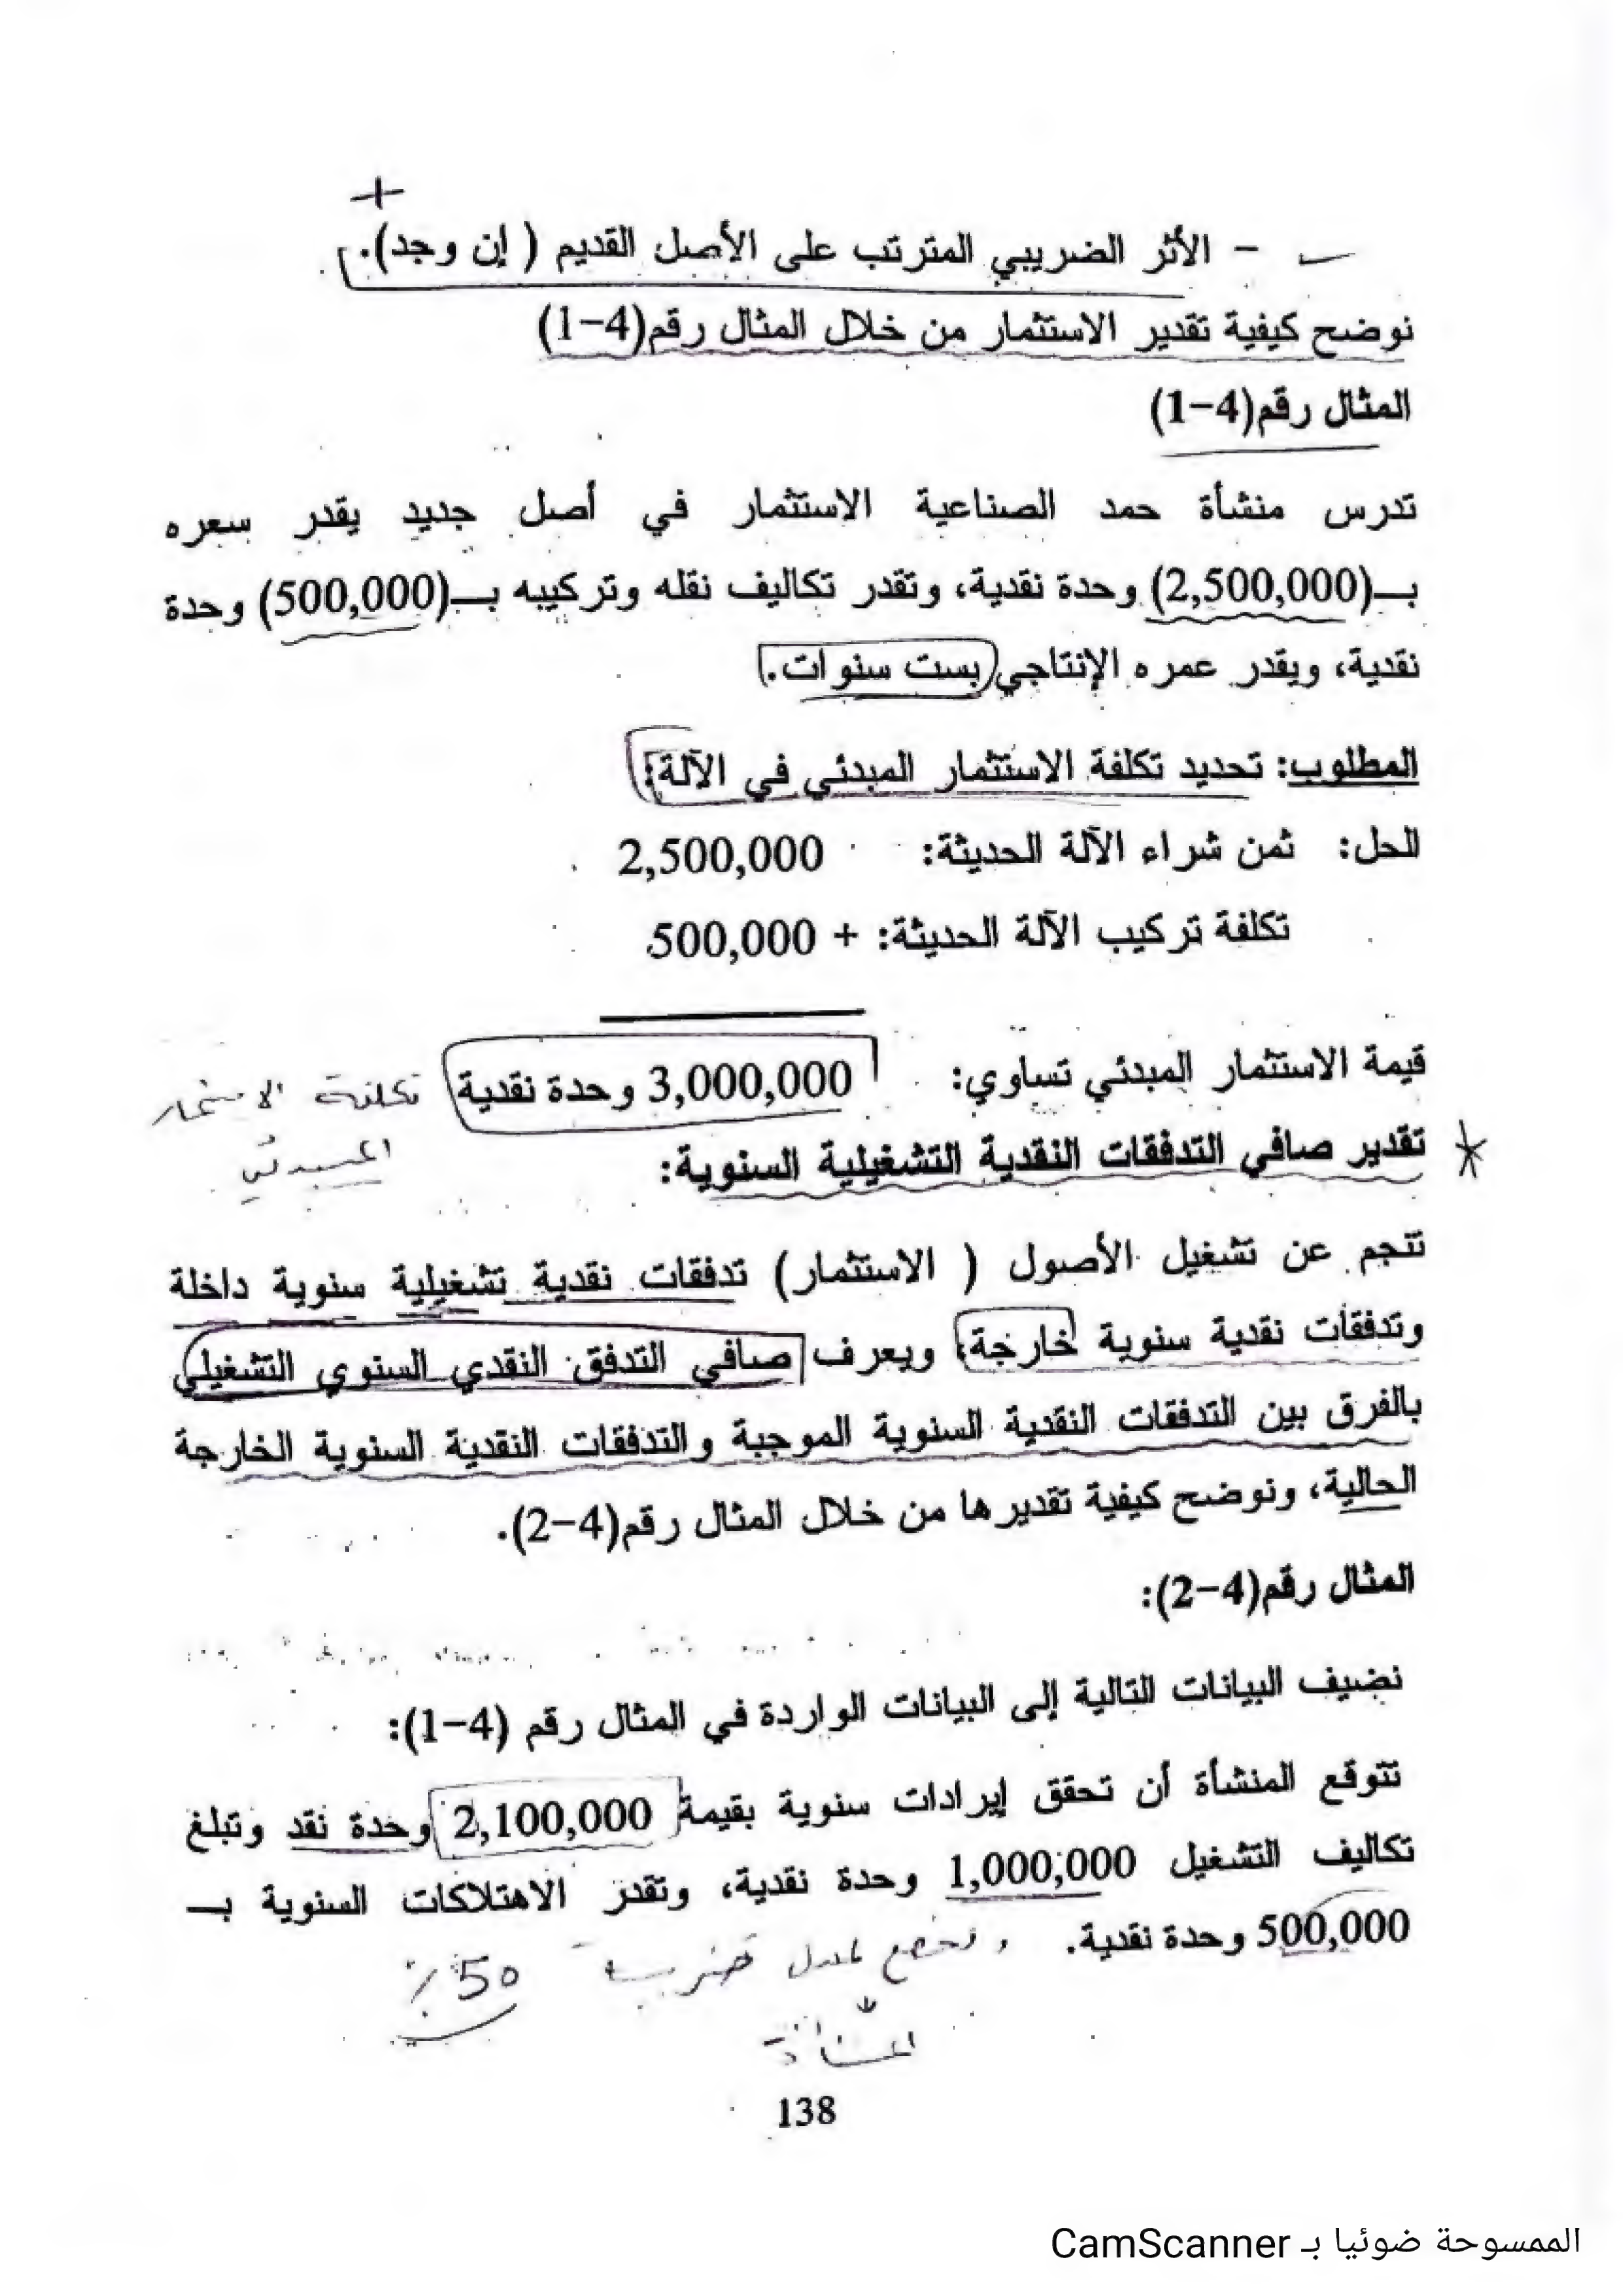 +
- الأثر الضريبي المترتب على الأصل القديم ( إن وجد).
نوضح كيفية تقدير الاستثمار من خلال المثال رقم(4-1)
المثال رقم(4-1)
تدرس منشأة حمد الصناعية الاستثمار في أصل جديد يقدر سعره
بـ(2,500,000) وحدة نقدية، وتقدر تكاليف نقله وتركيبه بـ(500,000) وحدة
نقدية، ويقدر عمره الإنتاجي بست سنوات.
المطلوب: تحديد تكلفة الاستثمار المبدئي في الآلة:
الحل: ثمن شراء الآلة الحديثة: 2,500,000
تكلفة تركيب الآلة الحديثة: + 500,000
قيمة الاستثمار المبدئي تساوي: 3,000,000 وحدة نقدية تكلفة الاستثمار
المبدئي
* تقدير صافي التدفقات النقدية التشغيلية السنوية:
تنجم عن تشغيل الأصول ( الاستثمار) تدفقات نقدية تشغيلية سنوية داخلة
وتدفقات نقدية سنوية خارجة، ويعرف صافي التدفق النقدي السنوي التشغيلي
بالفرق بين التدفقات النقدية السنوية الموجبة والتدفقات النقدية السنوية الخارجة
الحالية، ونوضح كيفية تقديرها من خلال المثال رقم(4-2).
المثال رقم(4-2):
نضيف البيانات التالية إلى البيانات الواردة في المثال رقم (4-1):
تتوقع المنشأة أن تحقق إيرادات سنوية بقيمة 2,100,000 وحدة نقد وتبلغ
تكاليف التشغيل 1,000,000 وحدة نقدية، وتقدر الاهتلاكات السنوية بـ
500,000 وحدة نقدية. وتخضع لمعدل ضريبة 50%
المنشأة
138
الممسوحة ضوئيا بـ CamScanner